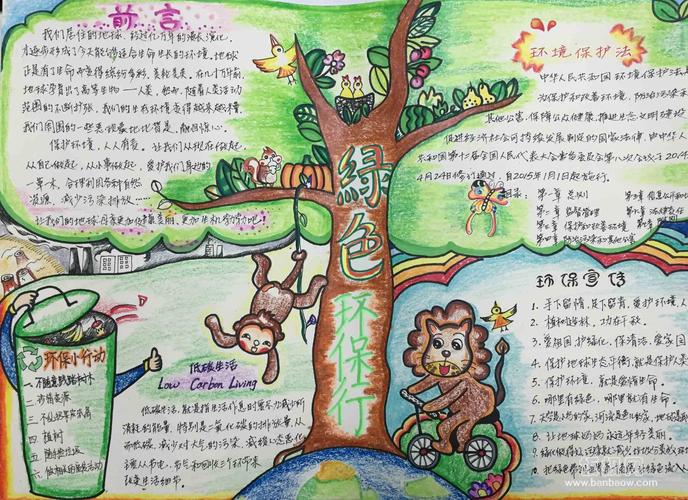 前言
我们居住的地球，经过亿万年的漫长演化，
才逐步形成了今天能够适合生命生长的环境，地球
正是有了生命而变得缤纷多彩，美轮美奂。在几十万年前，
地球孕育出了高等生物——人类。然而，随着人类活动
范围的不断扩张，我们的生存环境变得越来越恶劣，
我们周围的一些景观
保护环境，人人有责。让我们从现在做起，
从自己做起，从小事做起，爱护我们身边的
一草一木，合理利用各种自然
资源，减少污染排放……
让我们的地球母亲更加健康美丽、更加生机勃勃吧！
绿色
环保行
环境保护法
中华人民共和国环境保护法是
为保护和改善环境，防治污染和
其他公害，保障公众健康，推进生态文明建设
促进经济社会可持续发展制定的国家法律，由中华人
民共和国第十二届全国人民代表大会常务委员会第八次会议于2014
4月24日修订通过，自2015年1月1日起施行。
目录：第一章 总则
第二章 监督管理
第三章 保护和改善环境
第四章 防治污染和其他公害
第五章 信息公开和
第六章 法律责任
第七章 附则
环保小行动
一
二
三
四 植树
五
六
低碳生活
Low Carbon Living
低碳生活，就是指生活作息时要尽力减少所
消耗的能量，特别是二氧化碳的排放量，从
而低碳，减少对大气的污染，减缓生态恶化，
主要从节电、节气和回收三个环节来
改变生活细节。
环保宣传
1、手下留情，足下留青，爱护环境，人
2、植树造林，功在千秋。
3、爱祖国 护绿化，保清洁，爱家园
4、保护地球生态平衡，就是保护人类
5、保护环境，就是爱惜生命。
6、哪里有绿色，哪里就有生命。
7、
8、让地球妈妈永远年轻美丽。
9、
10、
www.banbaow.com